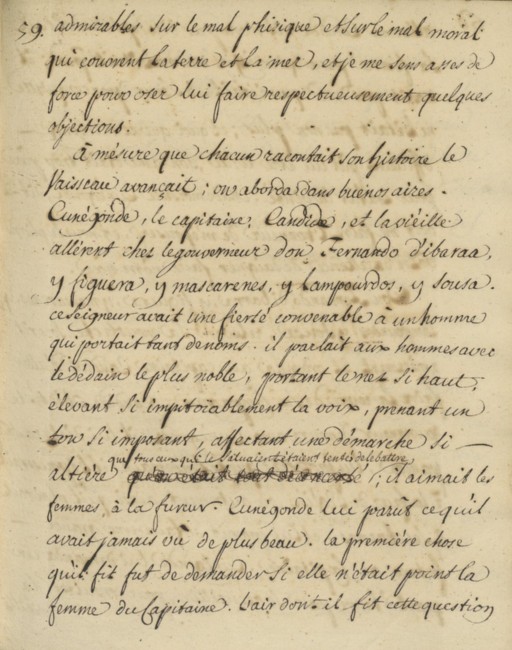 59. admirables sur le mal phisique et sur le mal moral
qui couvrent la terre et la mer, et je me sens asses de
force pour oser lui faire respectueusement quelques
objections.
à mésure que chacun racontait son histoire le
Vaisseau avançait; on aborda dans buénos aires.
Cunégonde, le capitaine, Candide, et la vieille
allérent chez le gouverneur don Fernando d'ibaraa,
y figuera, y mascarenes, y lampourdos, y sousa.
ce seigneur avait une fierté convenable à un homme
qui portait tant de noms. il parlait aux hommes avec
le dédain le plus noble, portant le nez si haut,
élevant si impitoiablement la voix, prenant un
ton si imposant, affectant une démarche si
que tous ceux qui le saluaient étaient tentés de le battre
altiére ; il aimait les
femmes, à la fureur. Cunégonde lui parût ce qu'il
avait jamais vû de plus beau. la premiére chose
qu'il fit fut de demander si elle n'était point la
femme du Capitaine. L'air dont il fit cette question